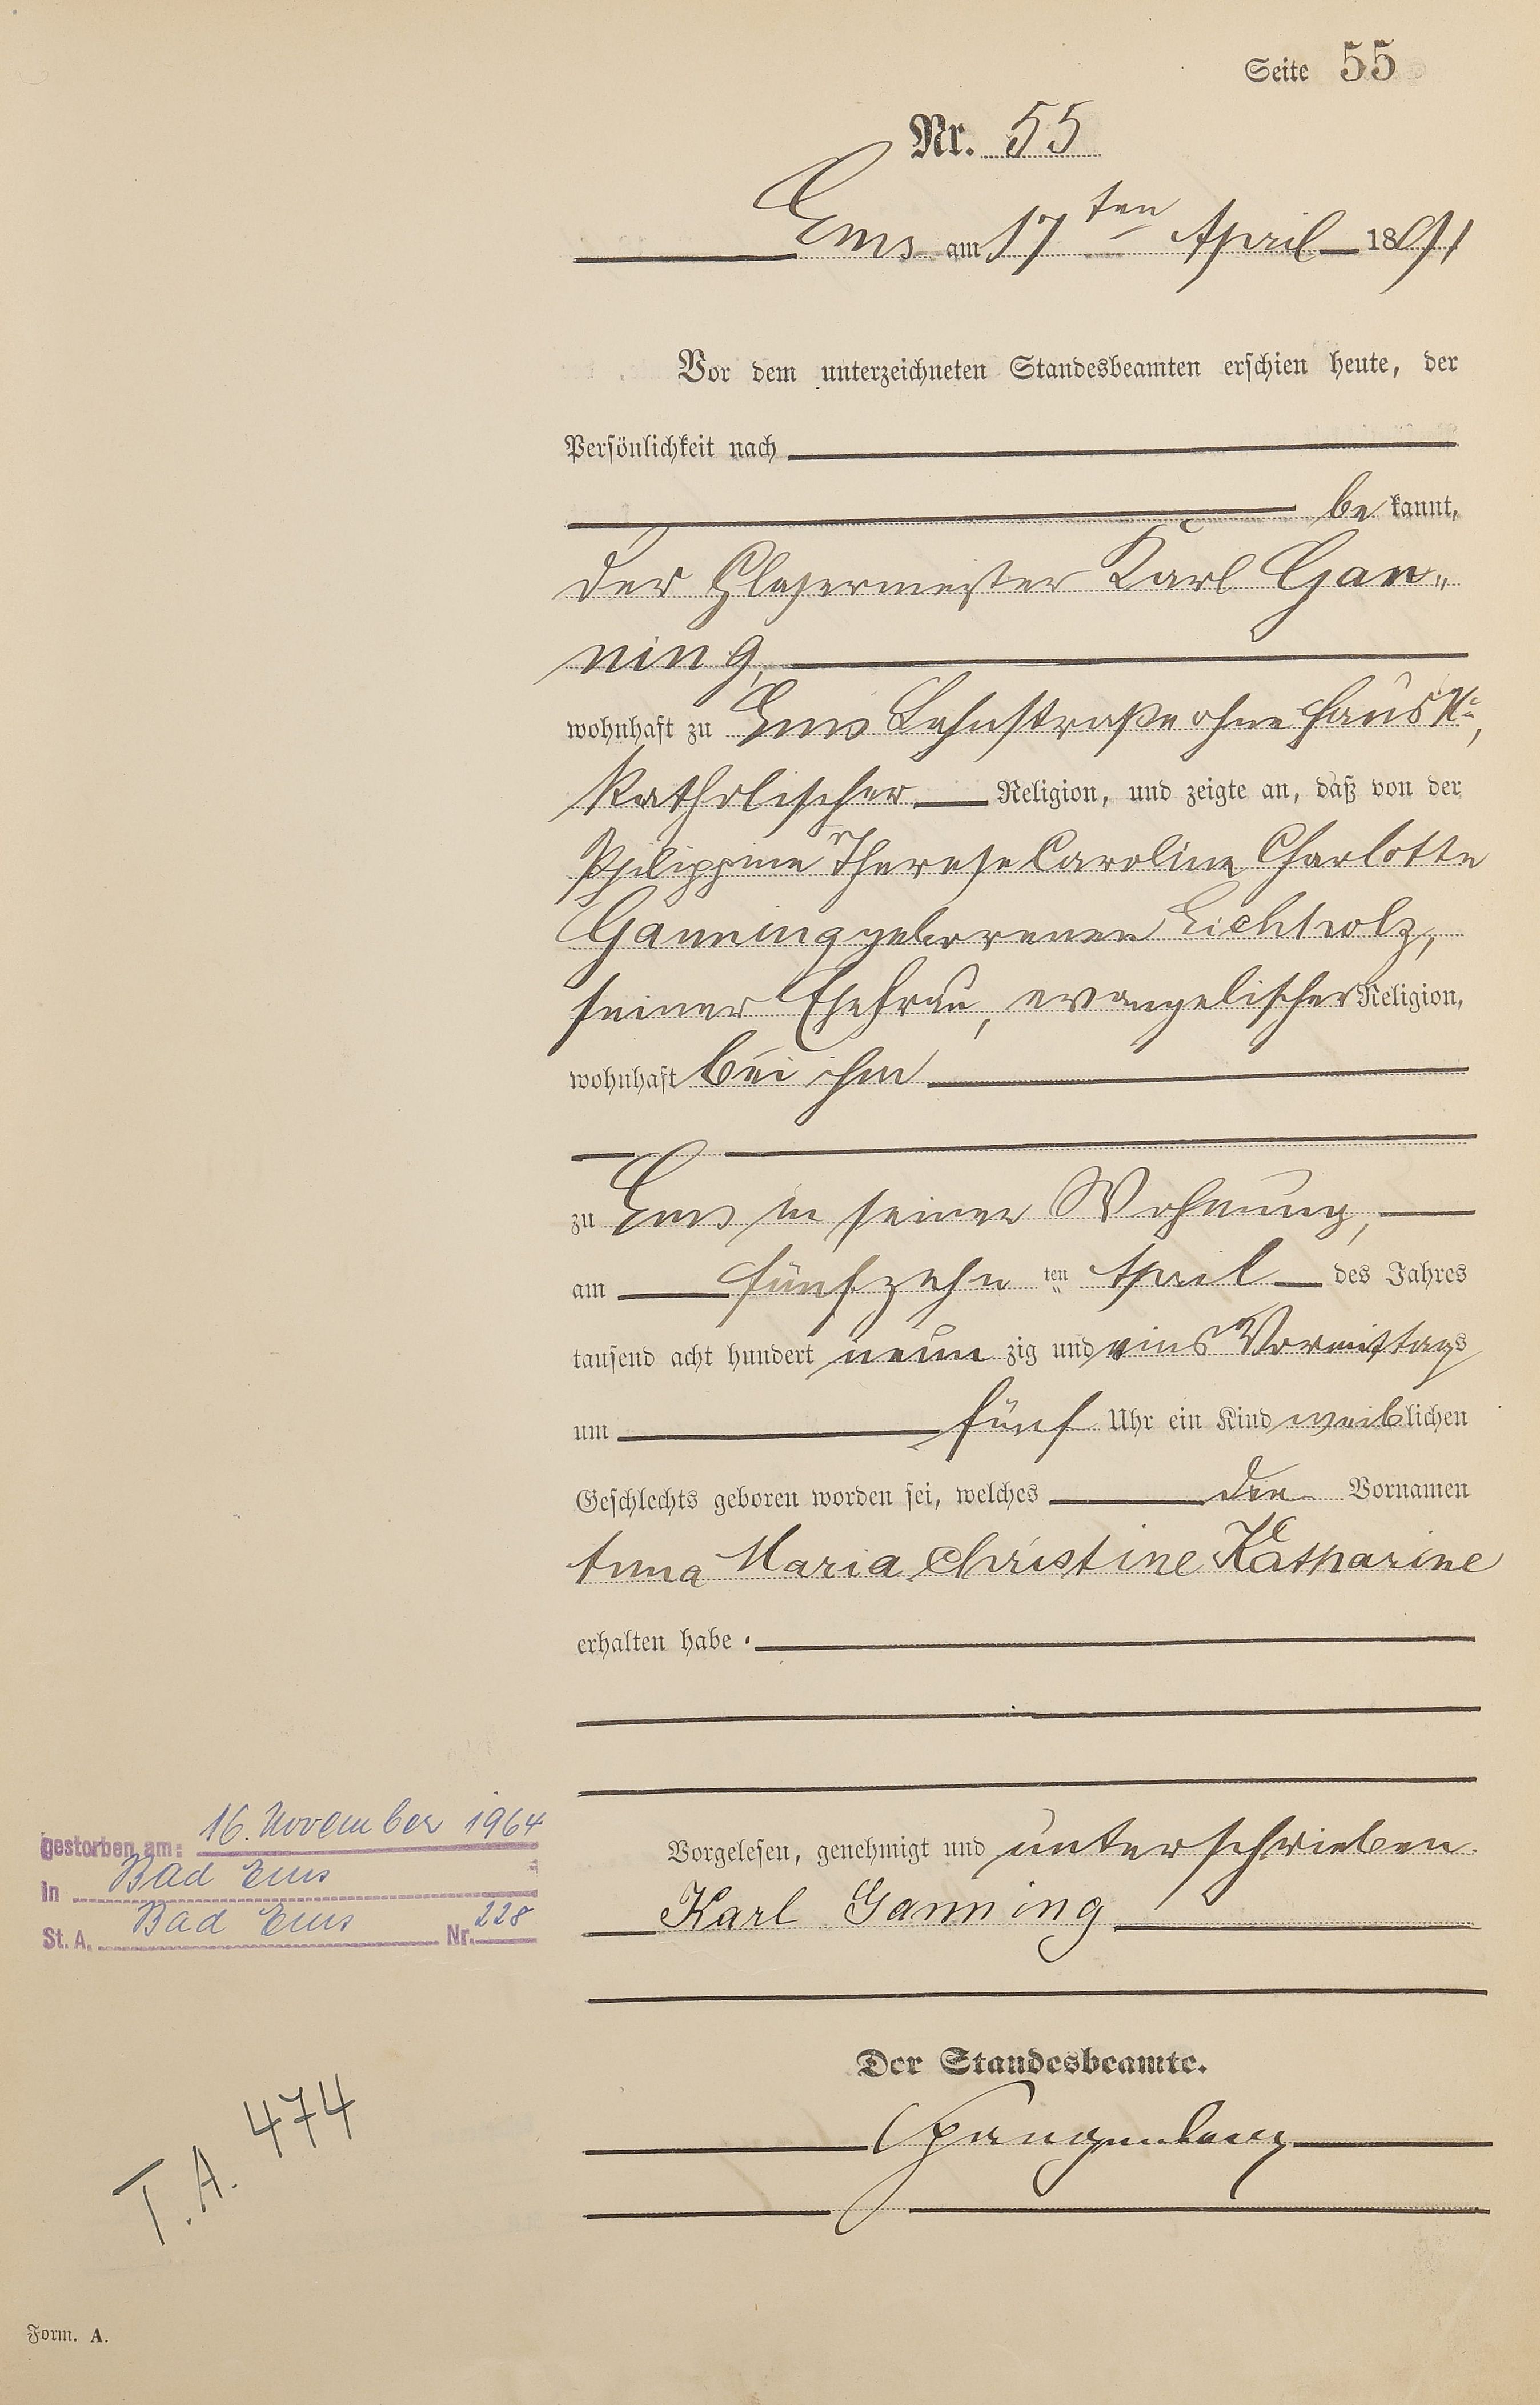 Seite 55
Nr. 55
Ems am 17ten April 1891
Vor dem unterzeichneten Standesbeamten erschien heute, der
Persönlichkeit nach
be kannt,
der Glasermeister Karl Gan„
ning,
wohnhaft zu Ems Lahnstraße ohne Haus No,
katholischer Religion, und zeigte an, daß von der
Philippine Therese Caroline Charlotte
Ganning geborenen Eichholz,
seiner Ehefrau, evangelischer Religion,
wohnhaft bei ihm
zu Ems in seiner Wohnung,
am fünfzehn ten April des Jahres
tausend acht hundert neun zig und eins Vormittags
um fünf Uhr ein Kind weiblichen
Geschlechts geboren worden sei, welches die Vornamen
Anna Maria Christine Katharine
erhalten habe.
gestorben am: 16. November 1964
in Bad Ems
St. A. Bad Ems Nr. 228
Vorgelesen, genehmigt und unterschrieben.
Karl Ganning
Der Standesbeamte.
Spangenberg
T. A. 474
Form. A.